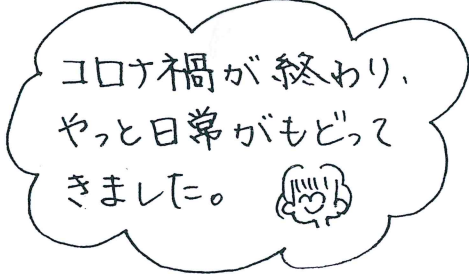 コロナ禍が終わり、
やっと日常がもどって
きました。